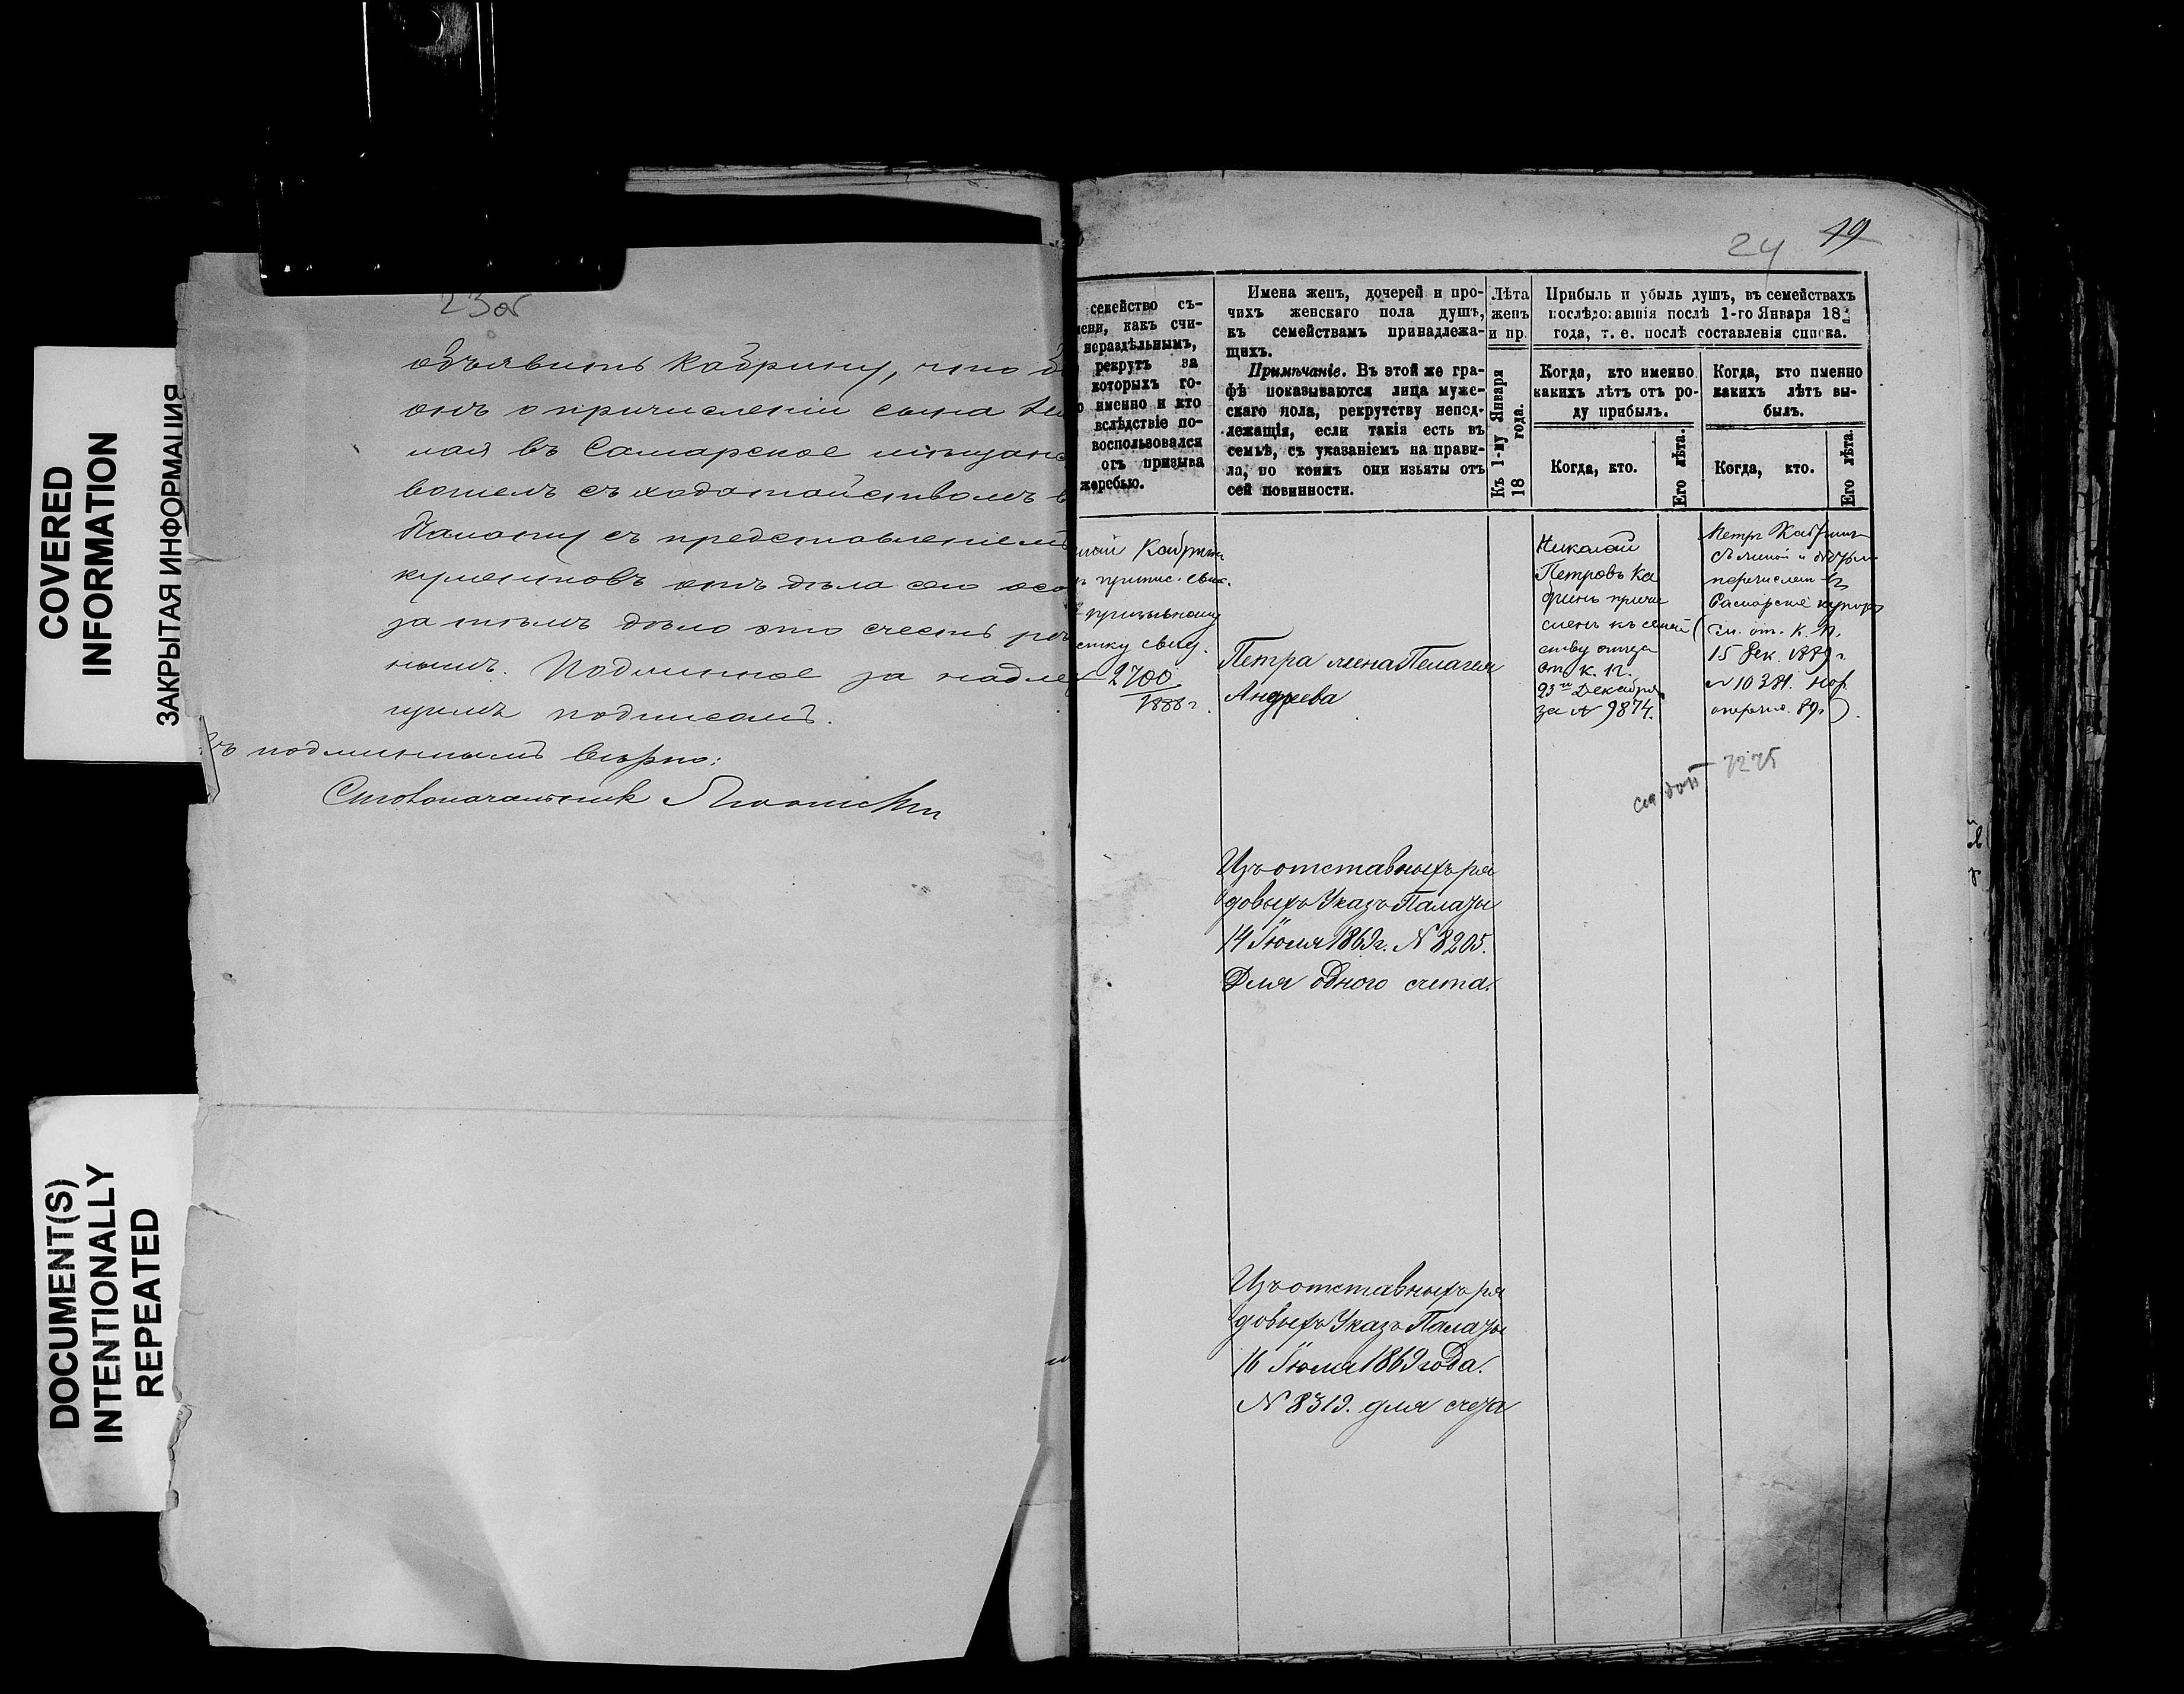 COVERED
INFORMATION
ЗАКРЫТАЯ ИНФОРМАЦИЯ
DOCUMENT(S)
INTENTIONALLY
REPEATED
23об
объявить Кабрину, что
онъ о причисленіи сына
лая въ Самарское мѣщанс
вошелъ съ ходатайствомъ в
Палату съ представленіемъ
кументовъ отъ дѣла сего осо
за тѣмъ дѣло это счесть рѣ
нымъ. Подлинное за надле
щимъ подписомъ.
Съ подлиннымъ вѣрно:
Столоначальникъ
24 19
семейство съ-
мени, какъ счи-
нераздѣльнымъ,
рекрутъ за
которыхъ го-
именно и кто
вслѣдствіе по-
воспользовался
отъ призыва
жеребью.
Имена женъ, дочерей и про-
чихъ женскаго пола душъ,
къ семействамъ принадлежа-
щихъ.
Примѣчаніе. Въ этой же гра-
фѣ показываются лица муже-
скаго пола, рекрутству непод-
лежащія, если такія есть въ
семьѣ, съ указаніемъ на прави-
ла, по коимъ они изъяты отъ
сей повинности.
Лѣта
женъ
и пр.
Къ 1-му Января
18 года.
Прибыль и убыль душъ, въ семействахъ
послѣдовавшія послѣ 1-го Января 18
года, т. е. послѣ составленія списка.
Когда, кто именно
какихъ лѣтъ отъ ро-
ду прибылъ.
Когда, кто именно
какихъ лѣтъ вы-
былъ.
Когда, кто.
Его лѣта.
Когда, кто.
Его лѣта.
лай Кабринъ
припис. свид.
призывному
стку свид.
2700
1888 г.
Петра жена Пелагея
Андреева
Николай
Петровъ Ка
бринъ причи
сленъ къ семей
ству отца
от. К. П.
23го Декабря
за № 9874.
Петръ Кабринъ
съ женой и
перечислен въ
Самарские купцы
(см. от. К. П.
15 Дек. 1889 г.
№ 10381.
89 г.)
см доп 7275
Изъ отставныхъ ря
довыхъ Указъ Палаты
14 Іюля 1869 г. № 8205.
Для одного счета.
Изъ отставныхъ ря
довыхъ Указъ Палаты
16 Іюля 1869 года.
№ 8319. для счета